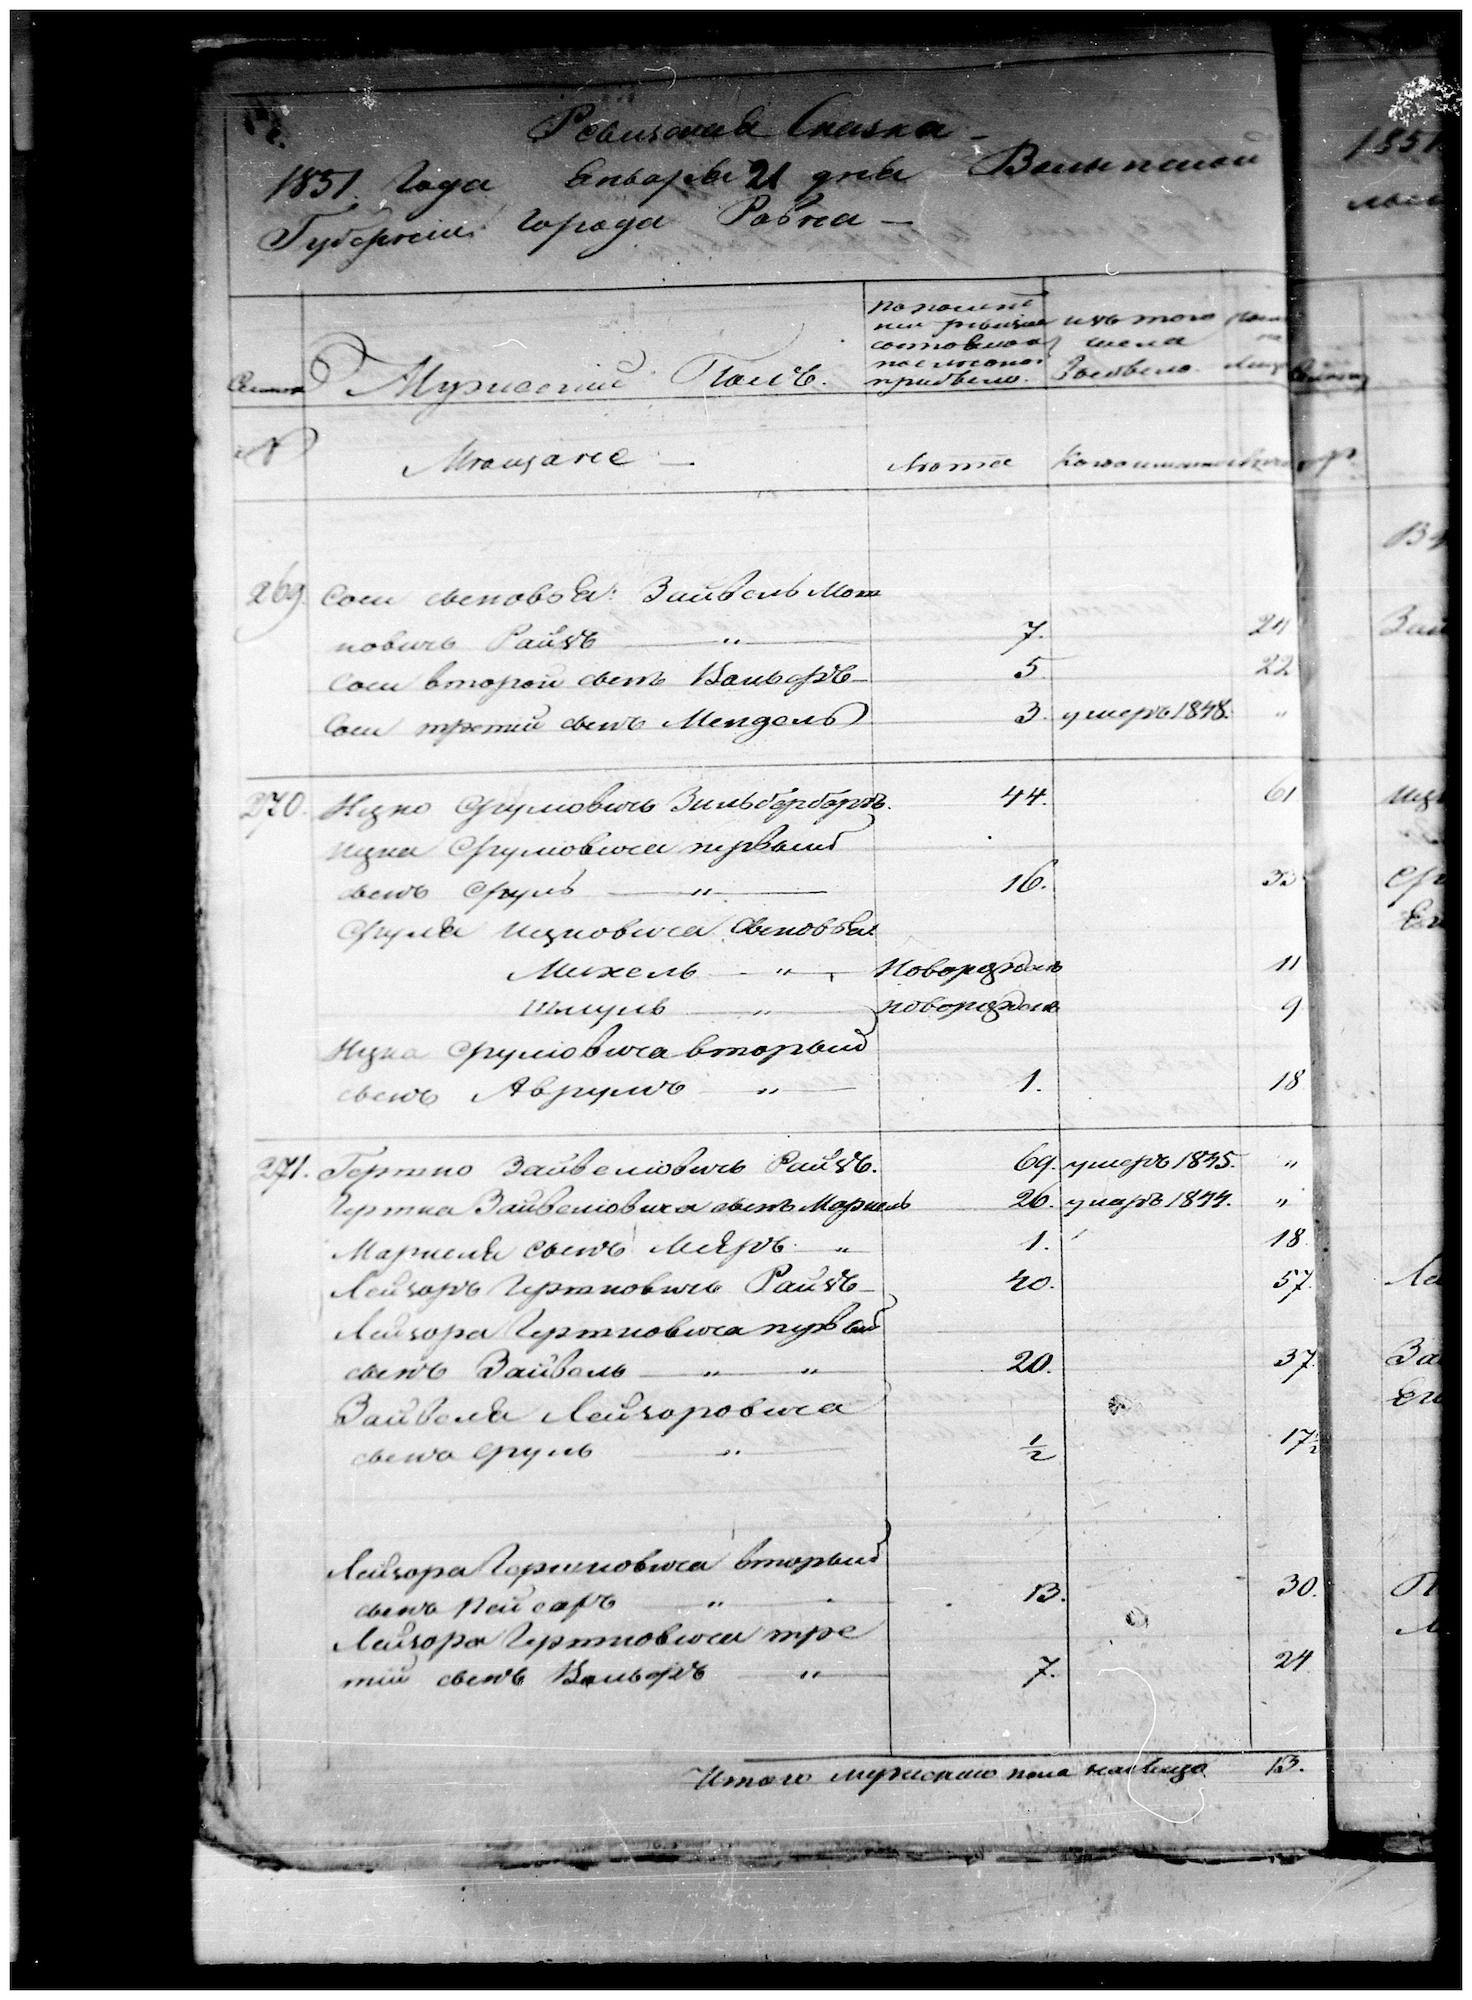 Ревизская Сказка
1851. Года Января 21 дня Волынской
Губернии города Ровна
1851
Семьи Мужеский Полъ.
по последней ревизіи состояло и после оной прибыло.
изъ того числа Выбыло.
№ Мещане
Лета Когда именно
269. Соси сыновья: Зайвель Мош
ковичь Райзъ — " — 7. 24
Соси второй сынъ Вольфъ 5. 22
Соси третий сынъ Мендель 3. умеръ 1848. "
270. Ицко Срулювичь Зильбербергъ. 44. 61
Ицка Срулювича первый
сынъ Сруль — " — 16. 33
Сруля Ицковича Сыновья:
Михель — " — новорожденъ 11
Шмуль — " — новорожденъ 9
Ицка Срулювича вторый
сынъ Аврумъ — " — 1. 18
271. Гершко Зайвелювичь Райзъ. 69. умеръ 1835. "
Гершка Зайвелювича сынъ Моркель 26. умеръ 1844. "
Моркеля сынъ Меяръ " 1. 18
Лейзоръ Гершковичь Райзъ 40. 57.
Лейзора Гершковича первый
сынъ Зайвель — " — " 20. 37.
Зайвеля Лейзоровича
сынъ Сруль — " — ½ 17½
Лейзора Гершковича вторый
сынъ Пейсахъ — " — 13. 30.
Лейзора Гершковича тре
тий сынъ Вольфъ — " — 7. 24
Итого мужеского пола налицо 13.